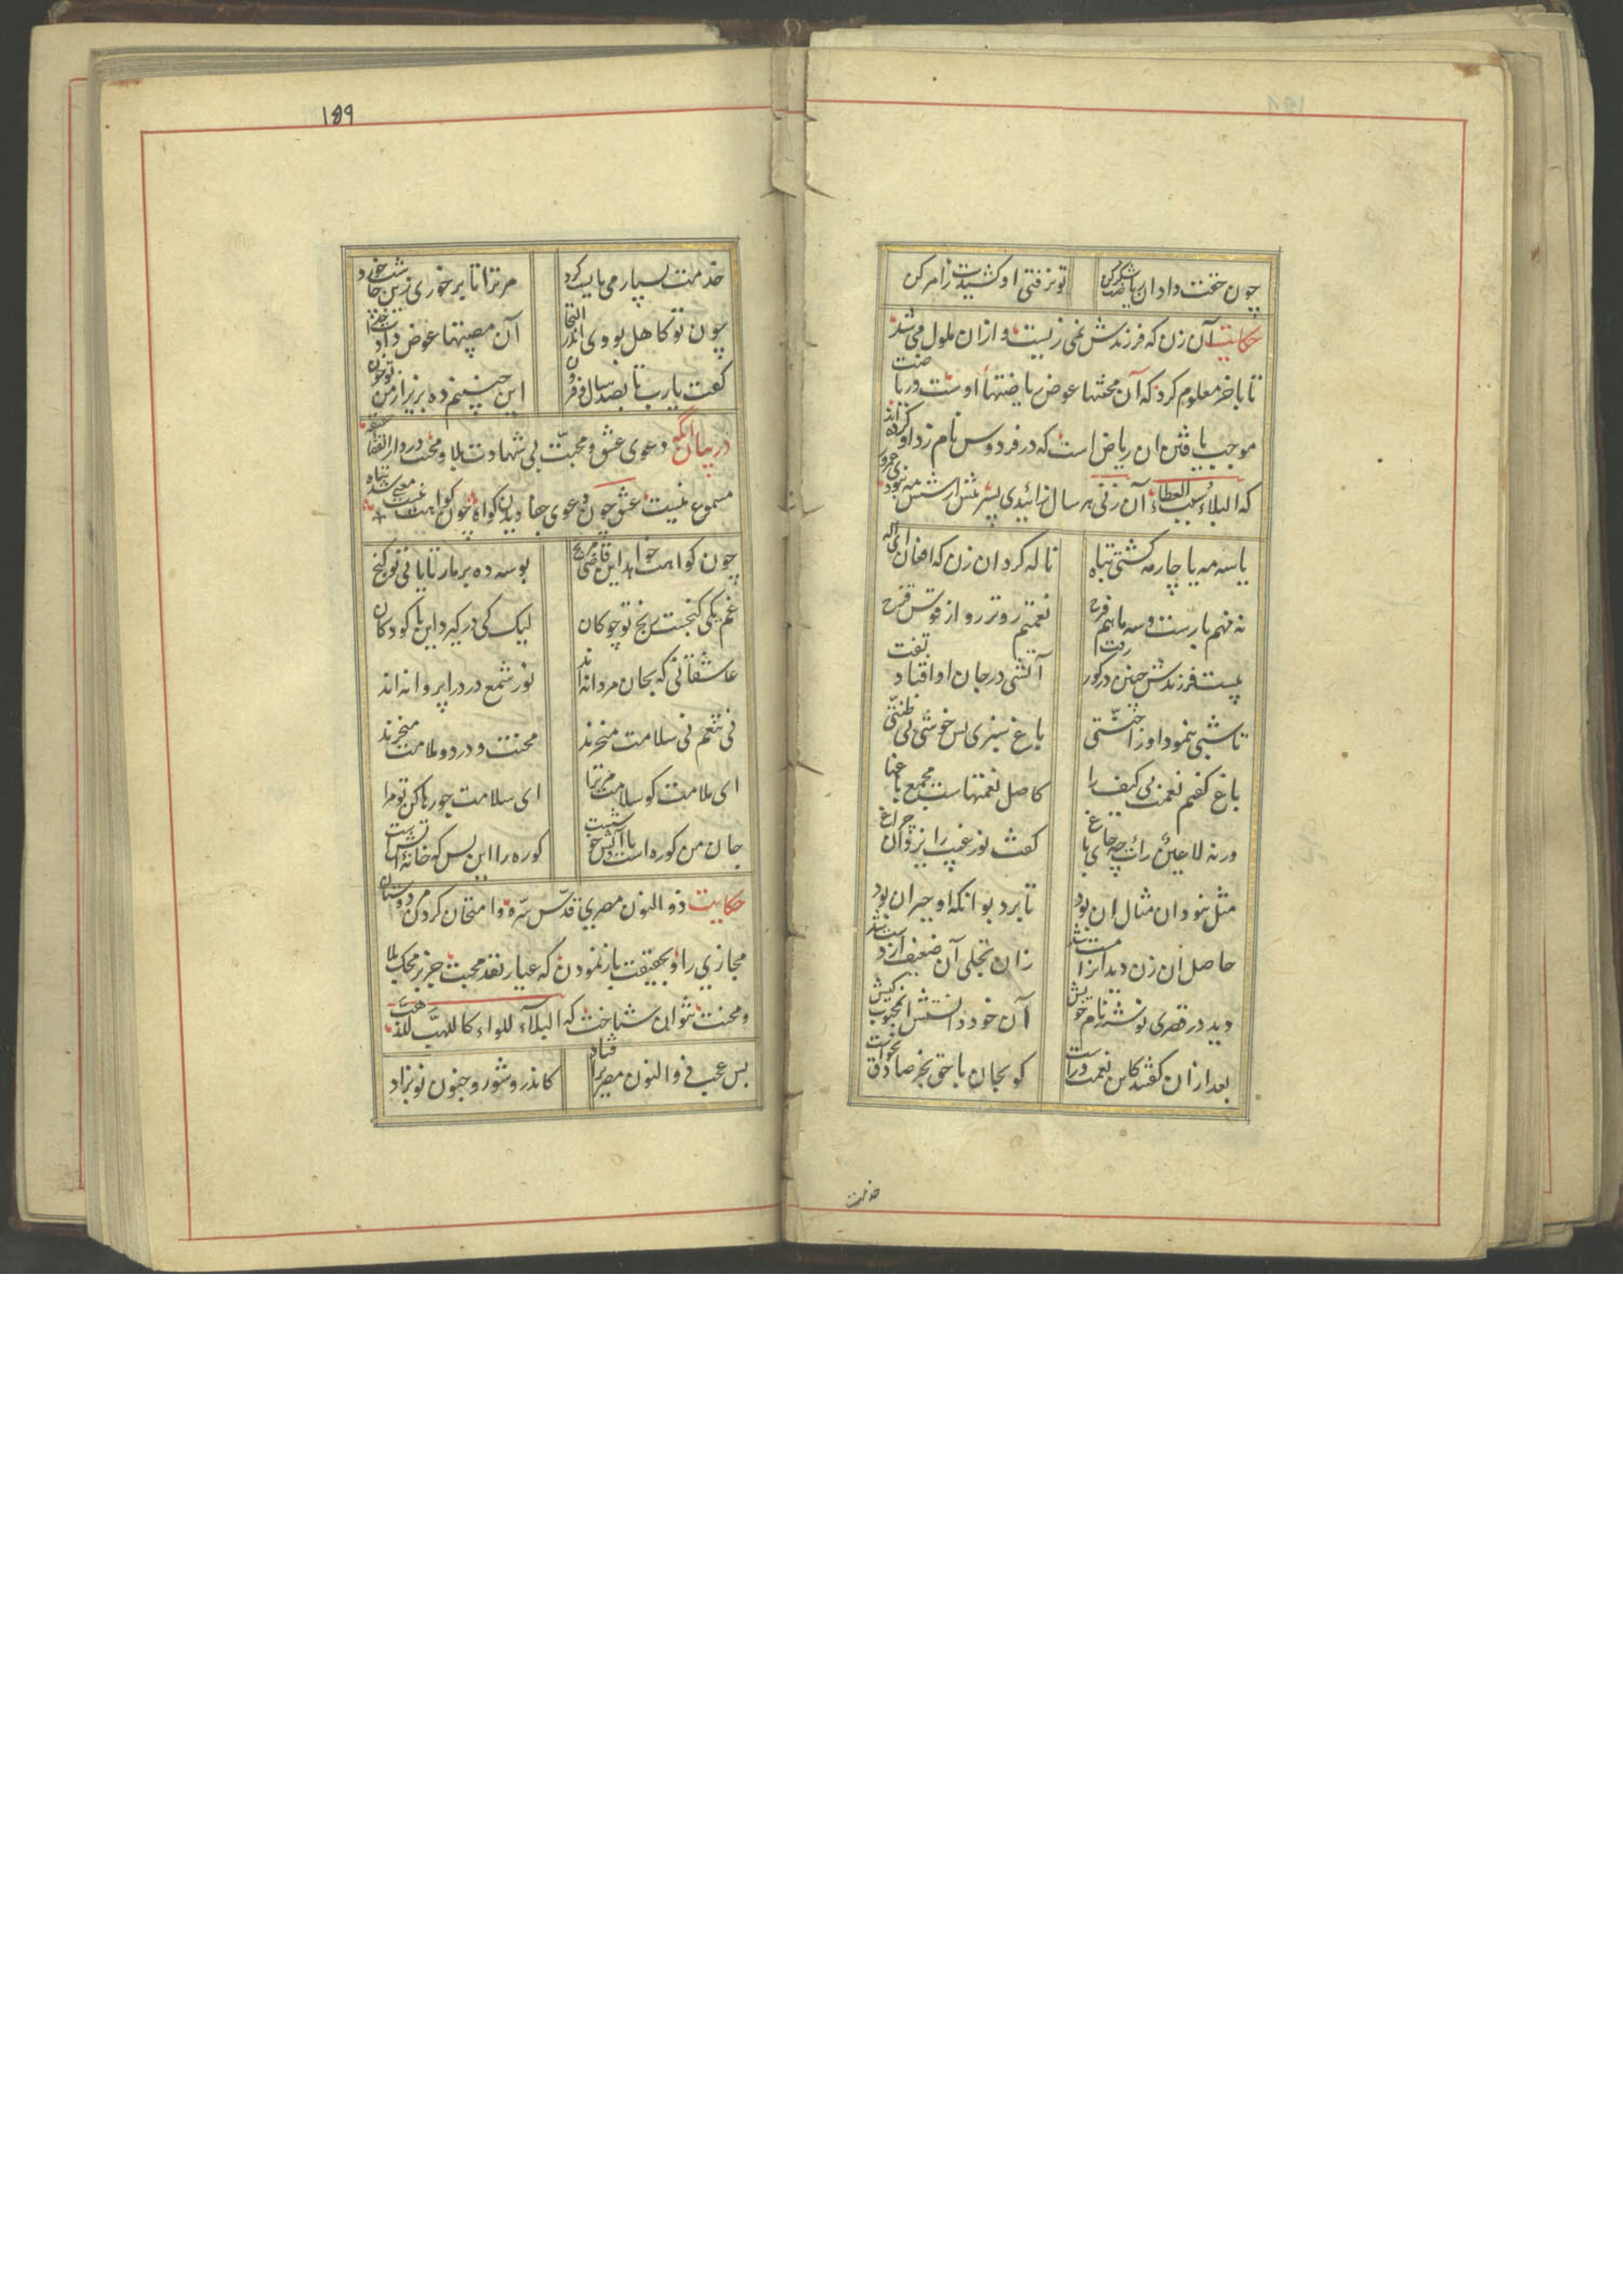 چون حقت داد آن ریاضت شکر کن
تو نرفتی او کشیدت ز امر کن
حکایت آن زن که فرزندش نمی زیست و ازان ملول می شد
تا باخر معلوم کرد که آن محنتها عوض ریاضتها اوست و ریاضت
موجب یافتن ان ریاض است که در فردوس نام زد او کرده اند
که البلاء سبب العطاء آن زنی هر سال زائیدی پسر بیش از شش مه نبودی
یا سه مه یا چار مه کشتی تباه
ناله کرد ان زن که افغان ای اله
نه مهم بارست و سه ماهم فرح
نعمتم زوتر رو از قوس قزح
بیست فرزندش چنین در کور رفت
آتشی در جان او افتاد تفت
تا شبی بنمود او را جنتی
باغ سبزی بس خوشی بی
باغ کفتم نعمت بی کیف را
کاصل نعمتهاست مجمع باغها
ورنه لا عین رات چه جای باغ
کفت نور غیب را یزدان چراغ
مثل نبود ان مثال ان بود
تا برد بو انکه او حیران بود
حاصل ان زن دید انرا مست شد
زان تجلی آن ضعیف از دست شد
دید در قصری نوشته نام خویش
آن خود دانستش ان محبوب کیش
بعد ازان کفتند کاین نعمت وراست
کو بجان بازی بجز صادق نخواست
خدمت
۱۵۹
خدمت بسیار می بایست کرد
مر ترا تا بر خوری زین چاشت خورد
چون تو کاهل بودی اندر التجا
آن مصیبتها عوض دادت خدا
کفت یارب تا بصد سال و فزون
این چنینم ده بریز از من تو خون
در بیان آنکه دعوی عشق و محبت بی شهادت بلا و محنت در دار القضا
مسموع نیست عشق چون دعوی جفا دیدن کواه چون کواهت نیست شد دعوی تباه
چون کواهت خواهد این قاضی مرنج
بوسه ده بر مار تا یابی تو کنج
غم یکی کنجست رنج تو چو کان
لیک کی در کیرد این با کودکان
عاشقانی که بجان مردانه اند
نور شمع درد را پروانه اند
نی تنعم نی سلامت میخرند
محنت و درد و ملامت میخرند
ای ملامت کو سلامت مر ترا
ای سلامت جو رها کن تو مرا
جان من کوره است با آتش خوشست
کوره را این بس که خانه آتشست
حکایت ذو النون مصری قدس سره و امتحان کردن مر دوستان
مجازی را و بحقیقت باز نمودن که عیار نقد محبت جز بر محک بلا
و محنت نتوان شناخت که البلاء للولاء کاللهب للذهب
بس عجب ذو النون مصری را فتاد
کاندرو شور و جنون نو بزاد